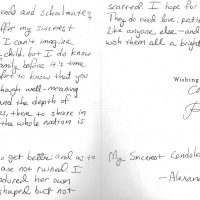 end and schoolmates,
ffer my sincerest
I can't imagine
child, but I do know
mily before it's time
fort to know that you
hough well-meaning
and the depth of
es, there to share in
the whole nation is.
o get better and as to
are not ruined. I
dured her own
shaped but not
scarred. I hope for
They do need love, patie
like anyone else—and
wish them all a bright
Wishing
Co
My Sincerest Condole